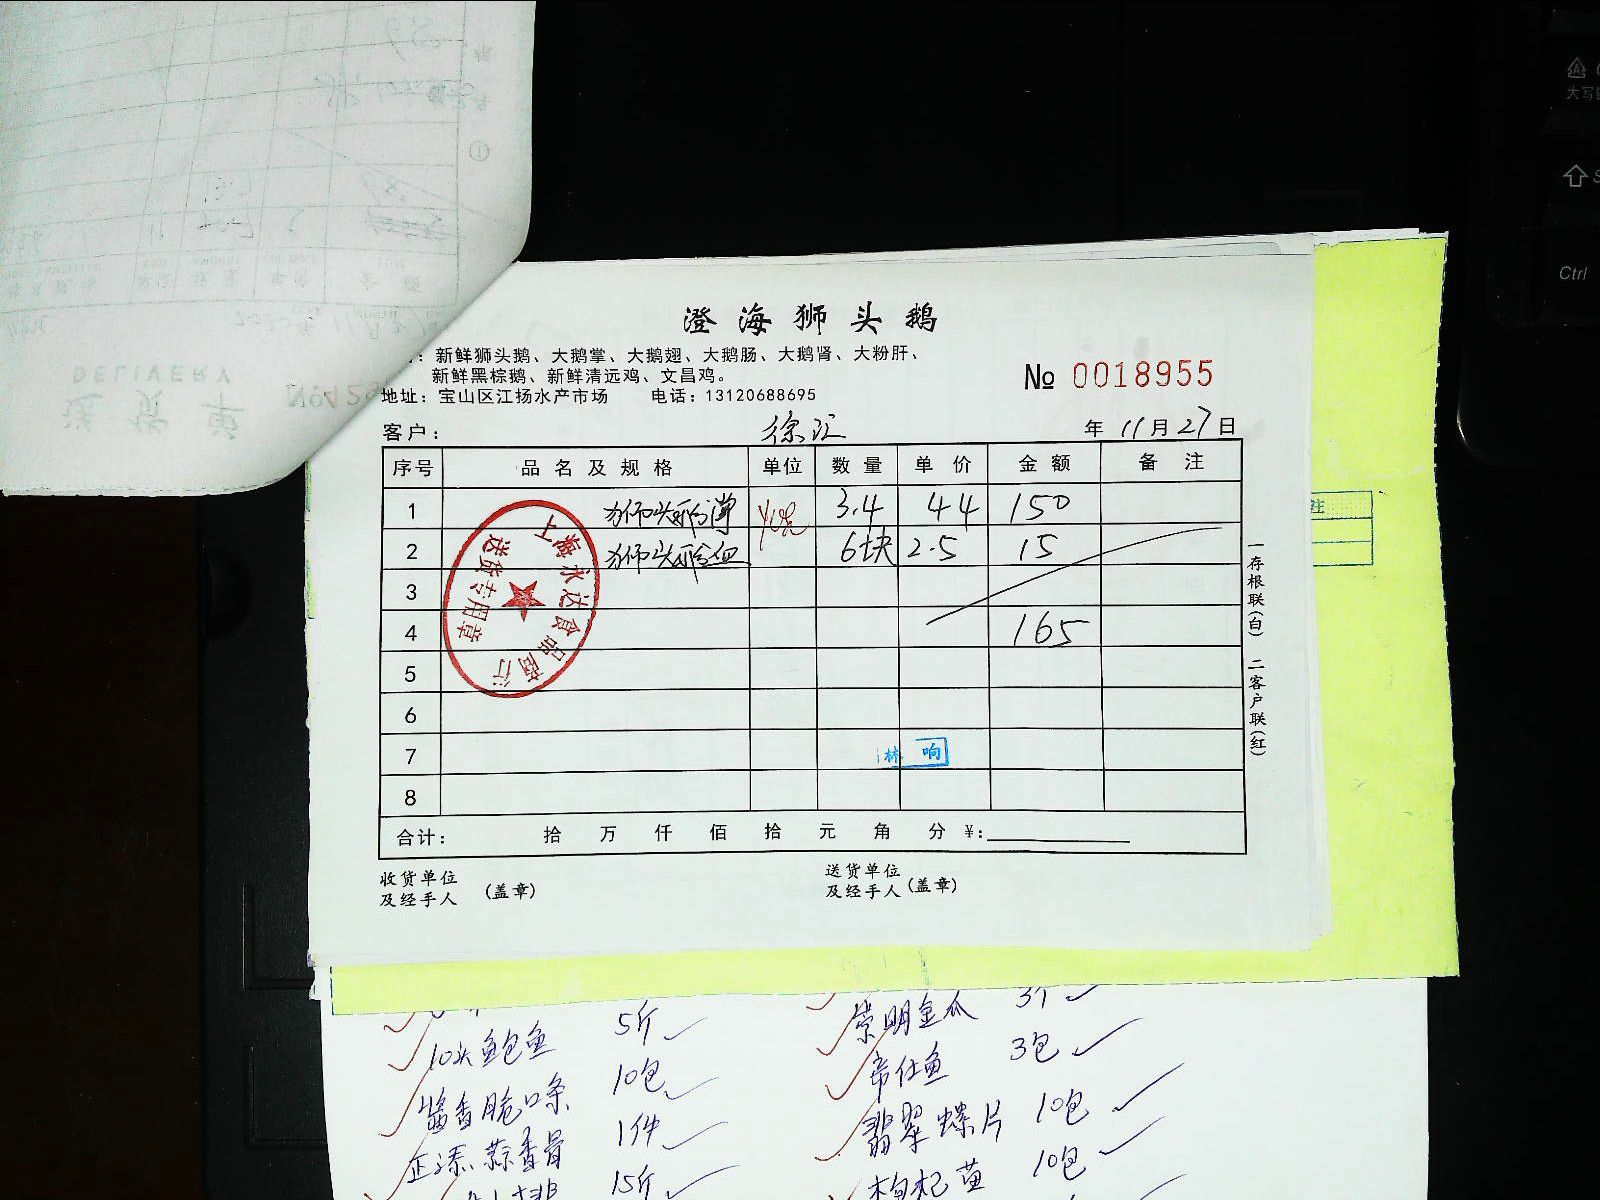 澄海狮头鹅
：新鲜狮头鹅、大鹅掌、大鹅翅、大鹅肠、大鹅肾、大粉肝、
新鲜黑棕鹅、新鲜清远鸡、文昌鸡。
№ 0018955
地址：宝山区江扬水产市场 电话：13120688695
客户： 徐汇 年 11月27日
序号 品名及规格 单位 数量 单价 金额 备注
1 狮头鹅 3.4 44 150
2 狮头鹅血 6块 2.5 15
3
4 165
5
6
7 林 响
8
合计： 拾 万 仟 佰 拾 元 角 分 ¥:
收货单位
及经手人 (盖章)
送货单位
及经手人 (盖章)
一存根联(白) 二客户联(红)
上海永达食品商行
送货专用章
送货单
DELIVERY
注
5斤
10头鲍鱼 10包
酱香脆口条 1件
蒜香骨 15斤
崇明金瓜 3个
帝仕鱼 3包
翡翠螺片 10包
枸杞苗 10包
大写
Ctrl